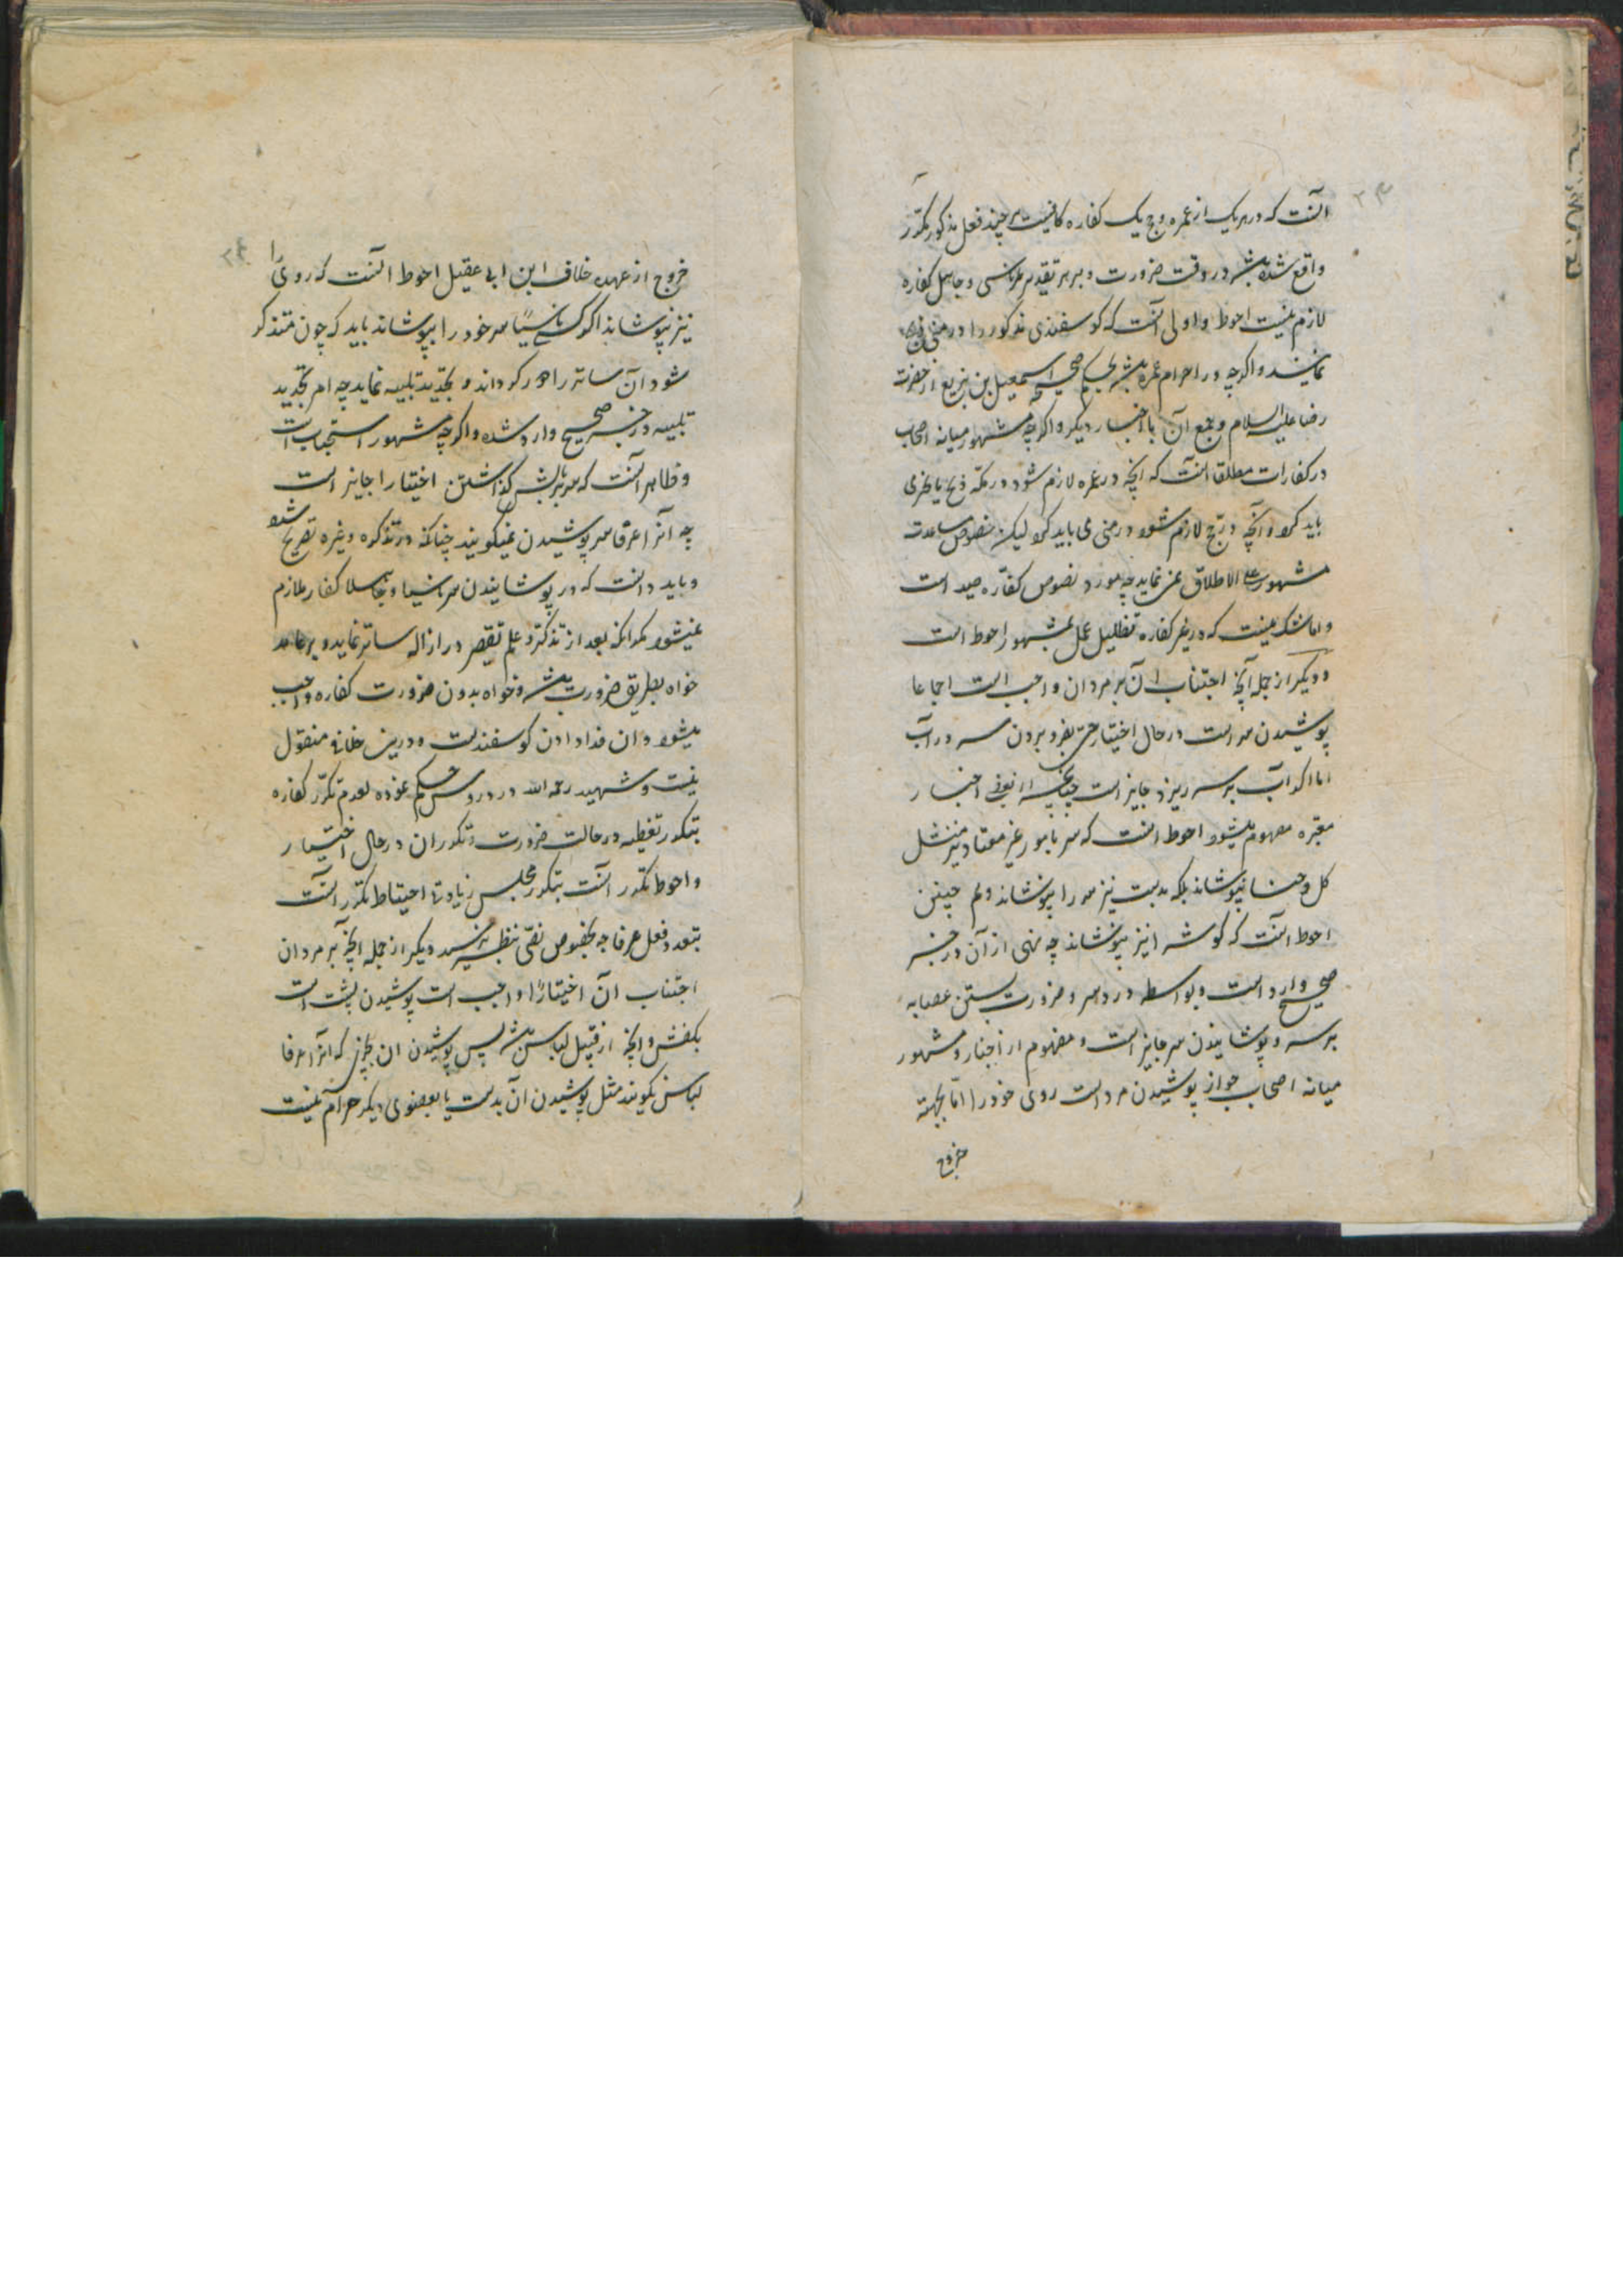 آنست که در هر یک از عمره و حج یک کفاره کافیست هر چند فعل مذکور مکرّر
واقع شده باشد در وقت ضرورت و بر هر تقدیر بر ناسی و جاهل کفاره
لازم نیست احوط و اولی آنست که کوسفندی مذکور را در منی ذبح
نمایند و اکرچه در احرام عمره باشد بحکم صحیحه اسمعیل بن بزیع از حضرت
رضا علیه السلام و جمع آن با اخبار دیکر و اکرچه مشهور میانه اصحاب
در کفارات مطلقا آنست که آنچه در عمره لازم شود در مکّه ذبح یا نحری
باید کرد و آنچه در حج لازم شود در منی می باید کرد لیکن نصوص مساعدت
مشهور علی الاطلاق نمی نماید چه مورد نصوص کفّاره صید است
و اما شک نیست که در غیر کفاره تظلیل عمل بمشهور احوط است
و دیکر از جمله آنچه اجتناب آن بر مردان واجب است اجماعا
پوشیدن سر است در حال اختیار حتی بفرو بردن سر در آب
اما اکر آب بر سر ریزد جایز است چنانچه از بعضی اخبار
معتبره مفهوم میشود احوط آنست که سر بامور غیر معتاد نیز مثل
کل و حنا نپوشاند بلکه بدست نیز سر را نپوشاند و هم چنین
احوط آنست که کوش را نیز نپوشاند چه نهی از آن در خبر
صحیح وارد است و بواسطه درد سر و ضرورت بستن عصابه
بر سر و پوشانیدن سر جایز است و مفهوم از اخبار و مشهور
میانه اصحاب جواز پوشیدن مرد است روی خود را امّا بجهته
خروج
خروج از عهده خلاف ابن ابی عقیل احوط آنست که روی را
نیز نپوشاند اکر کسی ناسیًا سر خود را بپوشاند باید که چون متذکر
شود آن ساتر را دور کرداند و تجدید تلبیه نماید چه امر بتجدید
تلبیه در خبر صحیح وارد شده و اکرچه مشهور استحباب است
و ظاهر آنست که سر بر بالش کذاشتن اختیارا جایز است
چه آنرا عرفا سر پوشیدن نمیکویند چنانکه در تذکره و غیره تصریح شده
و باید دانست که در پوشانیدن سر ناسیا و جاهلا کفاره لازم
نمیشود مکر آنکه بعد از تذکر و علم تقصیر در ازاله ساتر نماید و بر عامد
خواه بطریق ضرورت باشد و خواه بدون ضرورت کفاره واجب
میشود و آن فدا دادن کوسفند است و درین خلافی منقول
نیست و شهید رحمه الله در دروس حکم نموده بعدم تکرّر کفاره
بتکرر تغطیه در حالت ضرورت و تکرر آن در حال اختیار
و احوط تکرر آنست بتکرر مجلس و زیادتی احتیاط تکرر آنست
بتعدد فعل عرفا چه بخصوص نصّی بنظر نرسید دیکر از جمله آنچه بر مردان
اجتناب آن اختیارًا واجب است پوشیدن پشت پا است
بکفش و آنچه از قبیل لباس باشد پس پوشیدن آن بچیزی که آنرا عرفا
لباس نکویند مثل پوشیدن آن بدست یا بعضوی دیکر حرام نیست